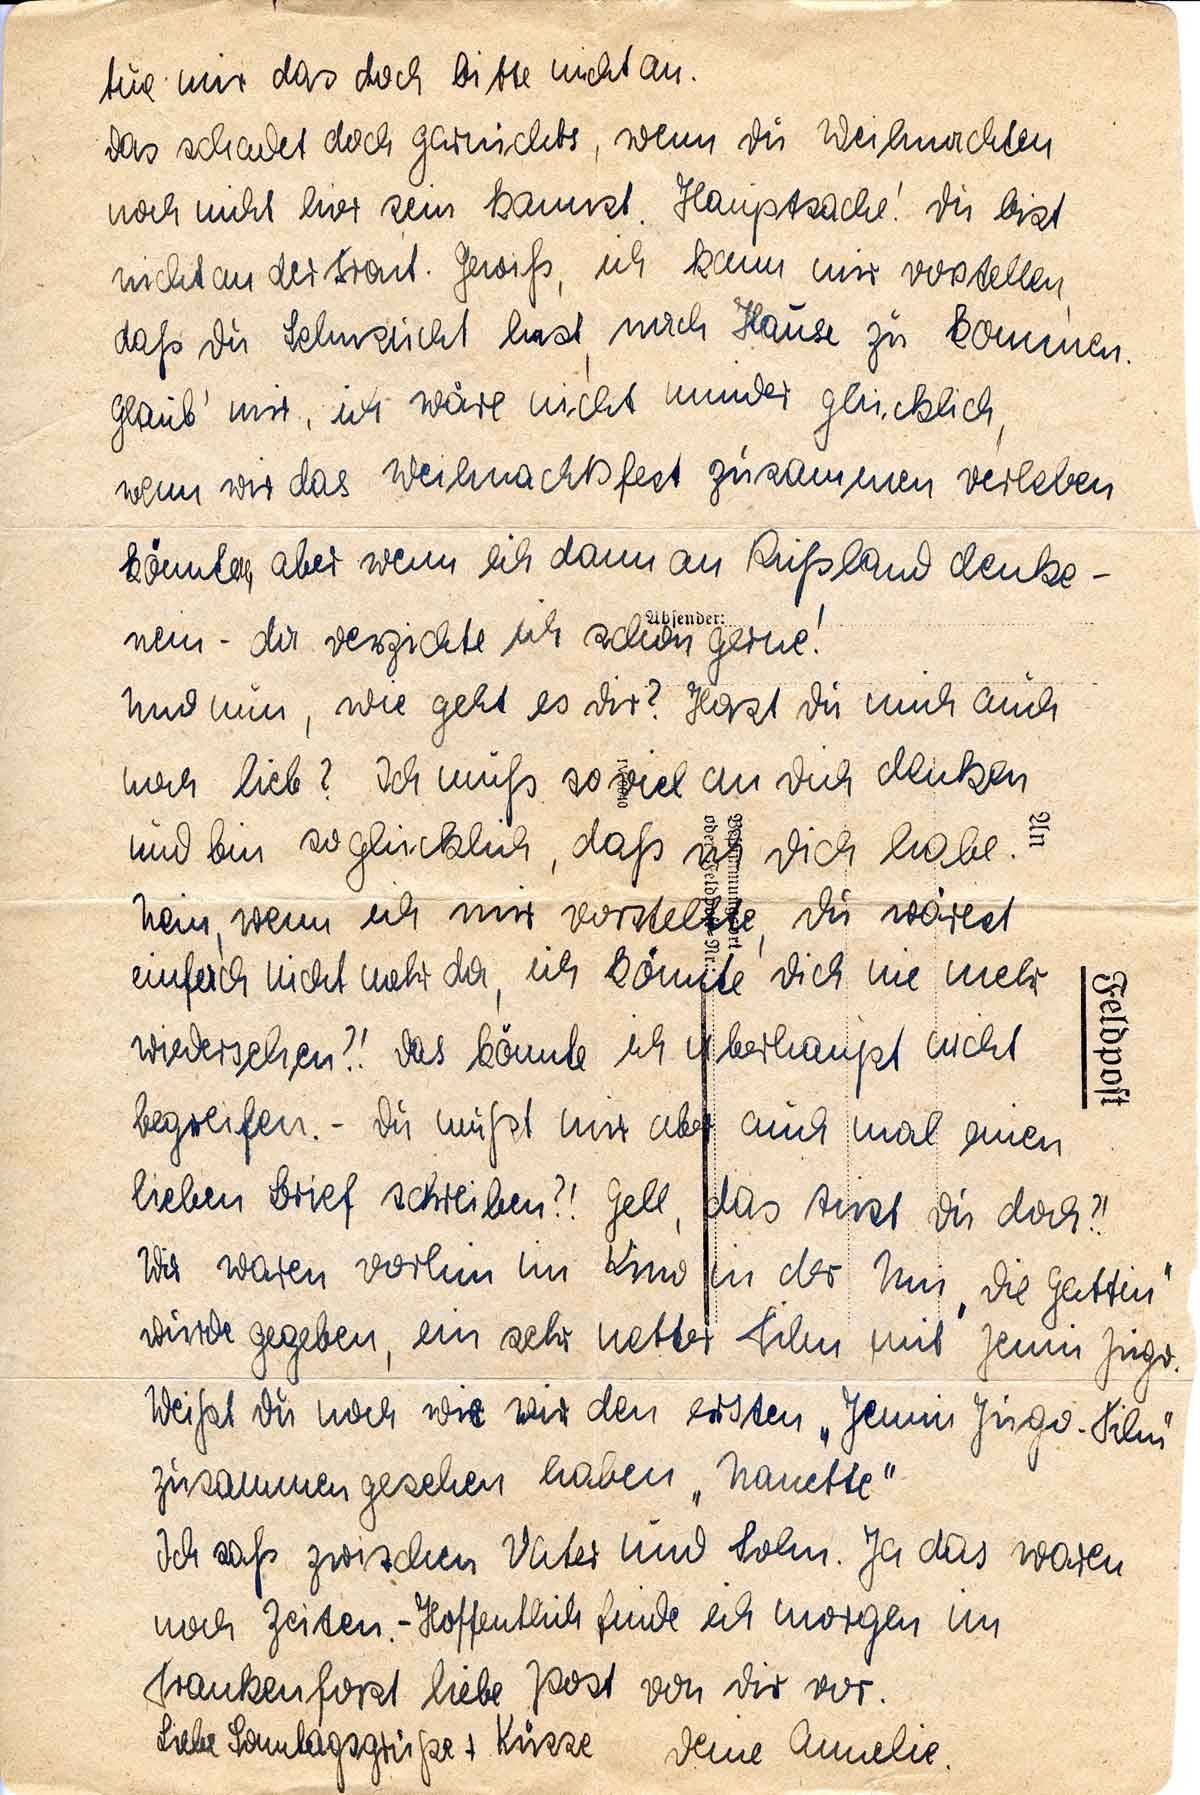 tue mir das doch bitte nicht an.
Das schadet doch garnichts, wenn Du Weihnachten
noch nicht hier sein kannst. Hauptsache! Du bist
nicht an der Front. Gewiß, ich kann mir vorstellen,
daß Du Sehnsucht hast, nach Hause zu kommen.
Glaub' mir, ich wäre nicht minder glücklich,
wenn wir das Weihnachtsfest zusammen verleben
könnten, aber wenn ich dann an Rußland denke -
nein - da verzichte ich schon gerne!
Absender:
Und nun, wie geht es Dir? Hast Du mich auch
noch lieb? Ich muß so viel an Dich denken
und bin so glücklich, daß ich Dich habe.
An
Nein, wenn ich mir vorstellte, Du wärest
einfach nicht mehr da, ich könnte Dich nie mehr
wiedersehen?! Das könnte ich überhaupt nicht
Feldpost
begreifen. - Du mußt mir aber auch mal einen
lieben Brief schreiben?! Gell, das tust Du doch?!
Wir waren vorhin im Kino in der Uni „Die Gattin"
wurde gegeben, ein sehr netter Film mit Jenni Jugo.
Weißt Du noch wie wir den ersten „Jenni Jugo-Film"
zusammen gesehen haben „Nanette"
Ich saß zwischen Vater und Sohn. Ja das waren
noch Zeiten. - Hoffentlich finde ich morgen im
Frankenforst liebe Post von Dir vor.
Liebe Sonntagsgrüße + Küsse Deine Annelie.